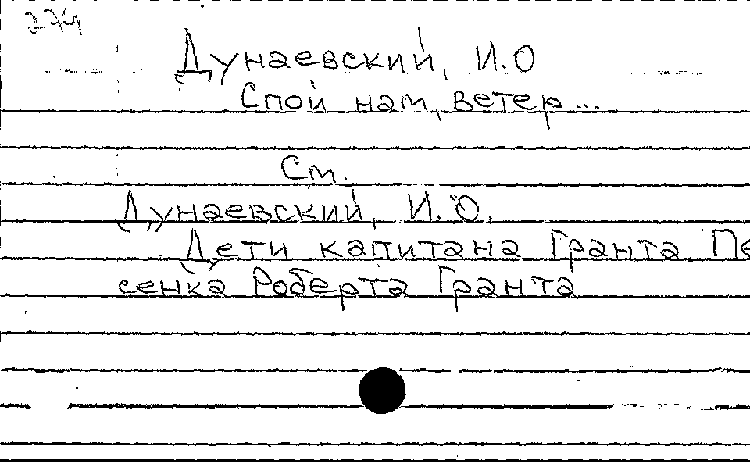 274
Дунаевский, И.О
Спой нам, ветер...
См.
Дунаевский, И.О.
Дети капитана Гранта Пе
сенка Роберта Гранта